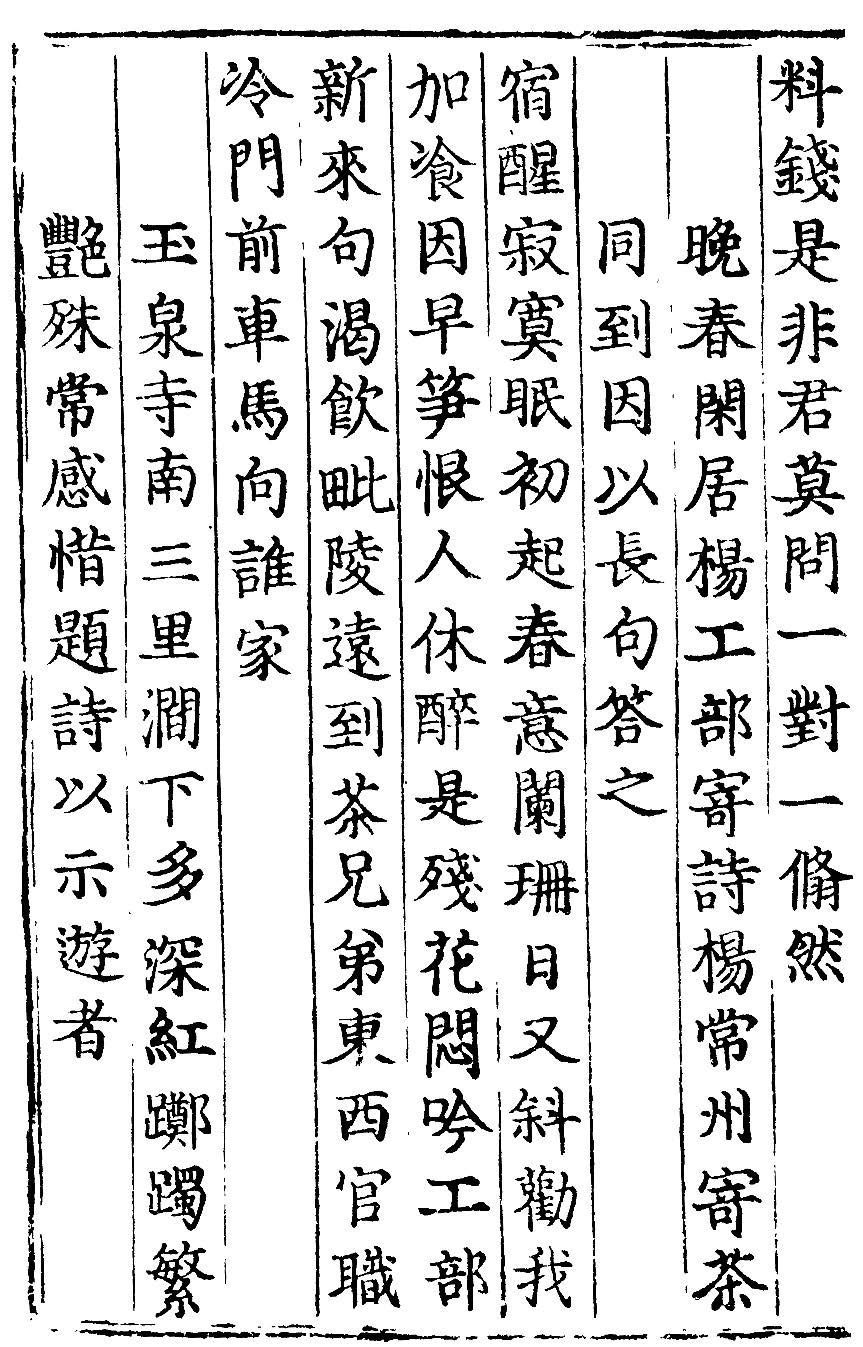 料錢是非君莫問一對一翛然
晚春閑居楊工部寄詩楊常州寄茶
同到因以長句答之
宿酲寂寞眠初起春意闌珊日又斜勸我
加飡因早笋恨人休醉是殘花悶吟工部
新來句渴飲毗陵遠到茶兄弟東西官職
冷門前車馬向誰家
玉泉寺南三里澗下多深紅躑躅繁
艷殊常感惜題詩以示遊者